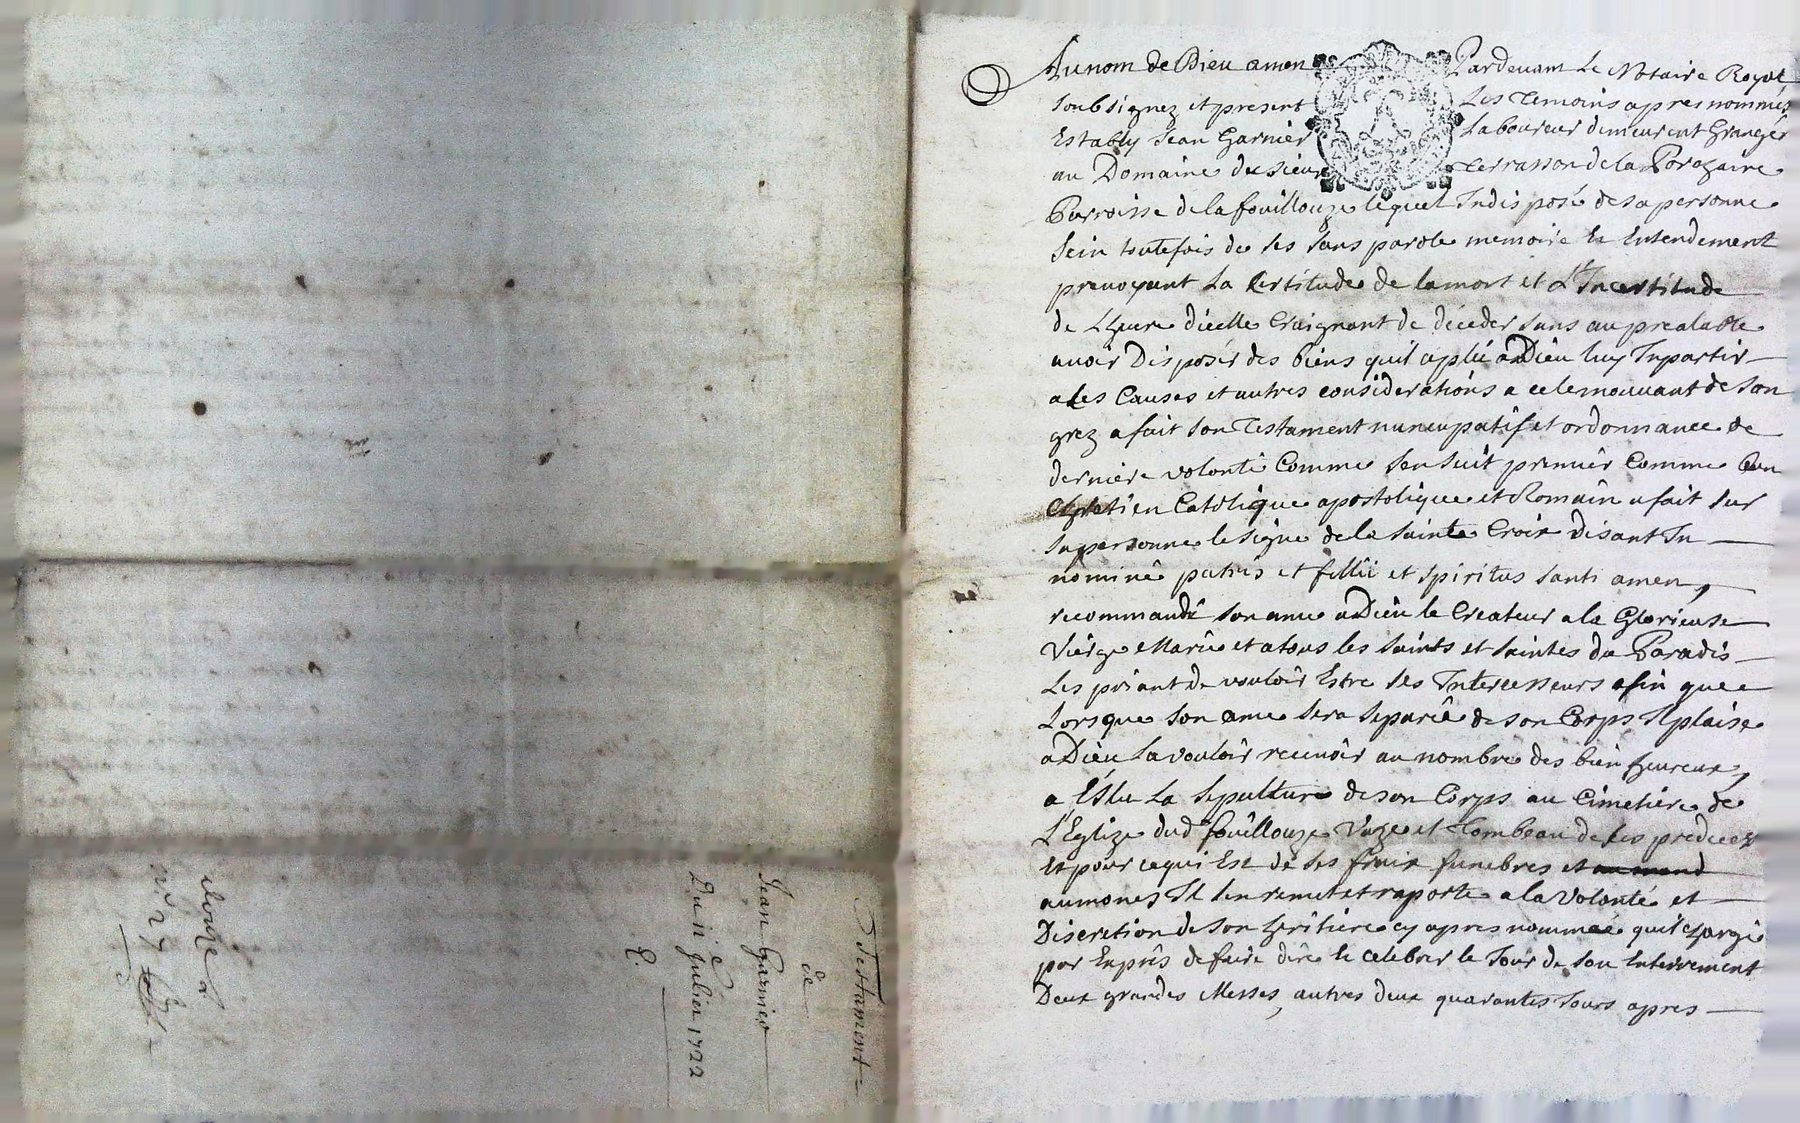 Testament
de
Jean Garnier
Du 11e juliet 1722
E.
Au nom de Dieu amen Pardevant Le Notaire Royal
soubsignez et present Les Temoins apres nommés
Estably Jean Garnier Laboureur demeurent Granger
au Domaine du sieur Terrasson de la
Parroisse de la fouillouze lequel Indisposé de sa personne
sein toutefois de ses sans parole memoire Et Entendement
prevoyant La Certitude de la mort et L'Incertitude
de Lheure dicelle Craignant de déceder sans au prealable
avoir Disposér des biens quil a plu a Dieu luy Inpartir
a Ces Causes et autres considerations a ce le mouvant de son
grez a fait son Testament nuncupatif et ordonnance de
derniere volonté Comme sensuit premiér Comme bon
Chretien Catolique apostolique et Romain a fait sur
sa personne le signe de la sainte Croix Disant In
nominé patris et fillii et spiritus santi amen,
recommandé son ame a Dieu le Createur a la Glorieuse
Vierge Marie et a tous les saints et saintes du Paradis
Les priant de vouloir Estre ses Intercesseurs afin que
Lorsque son ame sera separée de son Corps Il plaise
a Dieu La vouloir recevoir au nombre des bien heureux,
a Eslu La sepulture de son Corps au Cimetiére de
L'Eglize dud fouillouze Vaze et Tombeau de ses predecez
Et pour ce qui Est de ses fraix funebres et
aumones Il sen remet et raporte a la Volonté et
Discretion de son heritiere cy apres nommée quil charge
par Exprès de faire dire Et celebrer le Jour de son Enterrement
Deux grandes Messes, autres deux quarantes Jours apres